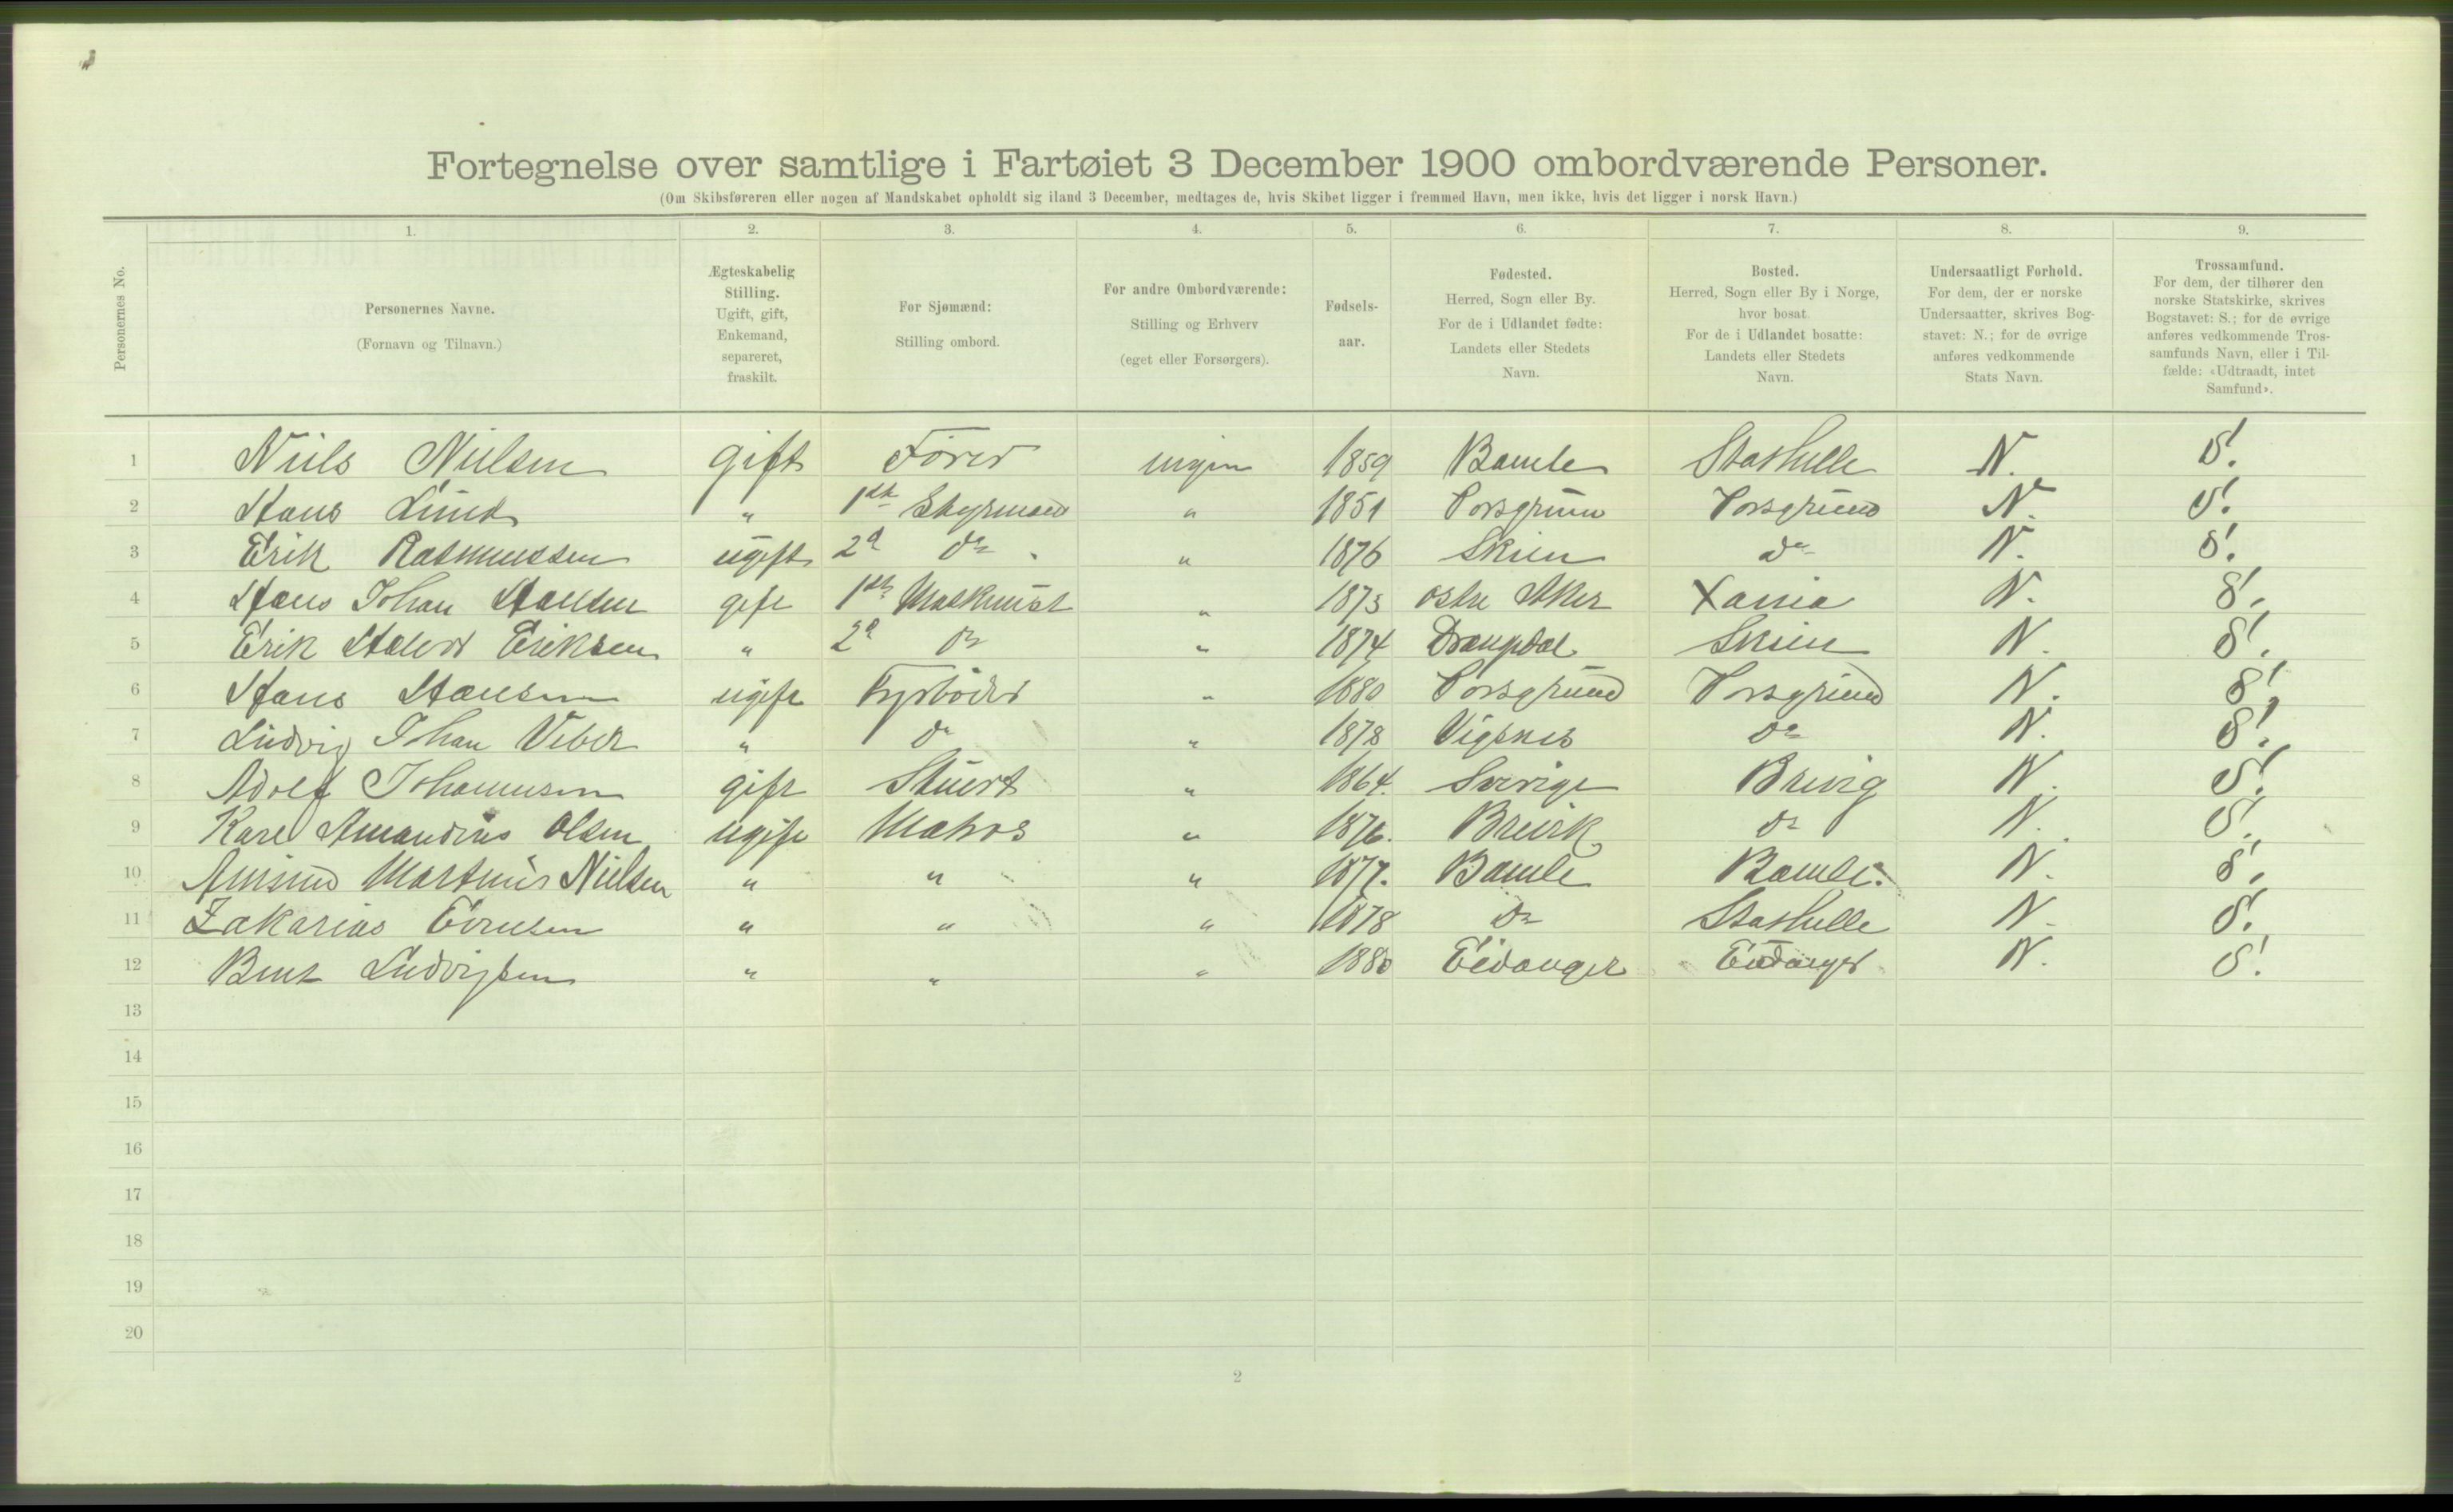 Fortegnelse over samtlige i Fartøiet 3 December 1900 ombordværende Personer.
(Om Skibsføreren eller nogen af Mandskabet opholdt sig iland 3 December, medtages de, hvis Skibet ligger i fremmed Havn, men ikke, hvis det ligger i norsk Havn.)
Personernes No.
1. 2. 3. 4. 5. 6. 7. 8. 9.
Personernes Navne.
(Fornavn og Tilnavn.)
Ægteskabelig
Stilling.
Ugift, gift,
Enkemand,
separeret,
fraskilt.
For Sjømænd:
Stilling ombord.
For andre Ombordværende:
Stilling og Erhverv
(eget eller Forsørgers).
Fødsels-
aar.
Fødested.
Herred, Sogn eller By.
For de i Udlandet fødte:
Landets eller Stedets
Navn.
Bosted.
Herred, Sogn eller By i Norge,
hvor bosat
For de i Udlandet bosatte:
Landets eller Stedets
Navn.
Undersaatligt Forhold.
For dem, der er norske
Undersaatter, skrives Bog-
stavet: N.; for de øvrige
anføres vedkommende
Stats Navn.
Trossamfund.
For dem, der tilhører den
norske Statskirke, skrives
Bogstavet: S.; for de øvrige
anføres vedkommende Tros-
samfunds Navn, eller i Til-
fælde: «Udtraadt, intet
Samfund».
1 Niels Nielsen gift Förer ingen 1859 Bamle Stathelle N. S.
2 Hans Lund " 1ste Styrmand " 1851 Porsgrund Porsgrund N. S.
3 Erik Rasmussen ugift 2d do " 1876 Skien do N. S.
4 Hans Johan Hansen gift 1ste Maskinist " 1873 ostre Aker Xania N. S.
5 Erik Eriksen " 2d do " 1874 Drangdal Skien N. S.
6 Hans Hansen ugift Fyrböder " 1880 Porsgrund Porsgrund N. S.
7 Ludvig Johan Veber " do " 1878 Vigsnes do N. S.
8 Adolf Johannesen gift Stuert " 1864. Sverige Brevig N. S.
9 Karl Amandius Olsen ugift Matros " 1876. Brevik do N. S.
10 Martinius Nielsen " " " 1877. Bamle Bamle. N. S.
11 Zakarias Evensen " " " 1878 do Stathelle N. S.
12 Bent Ludvigsen " " " 1880 Eidanger Eidanger N. S.
13
14
15
16
17
18
19
20
2